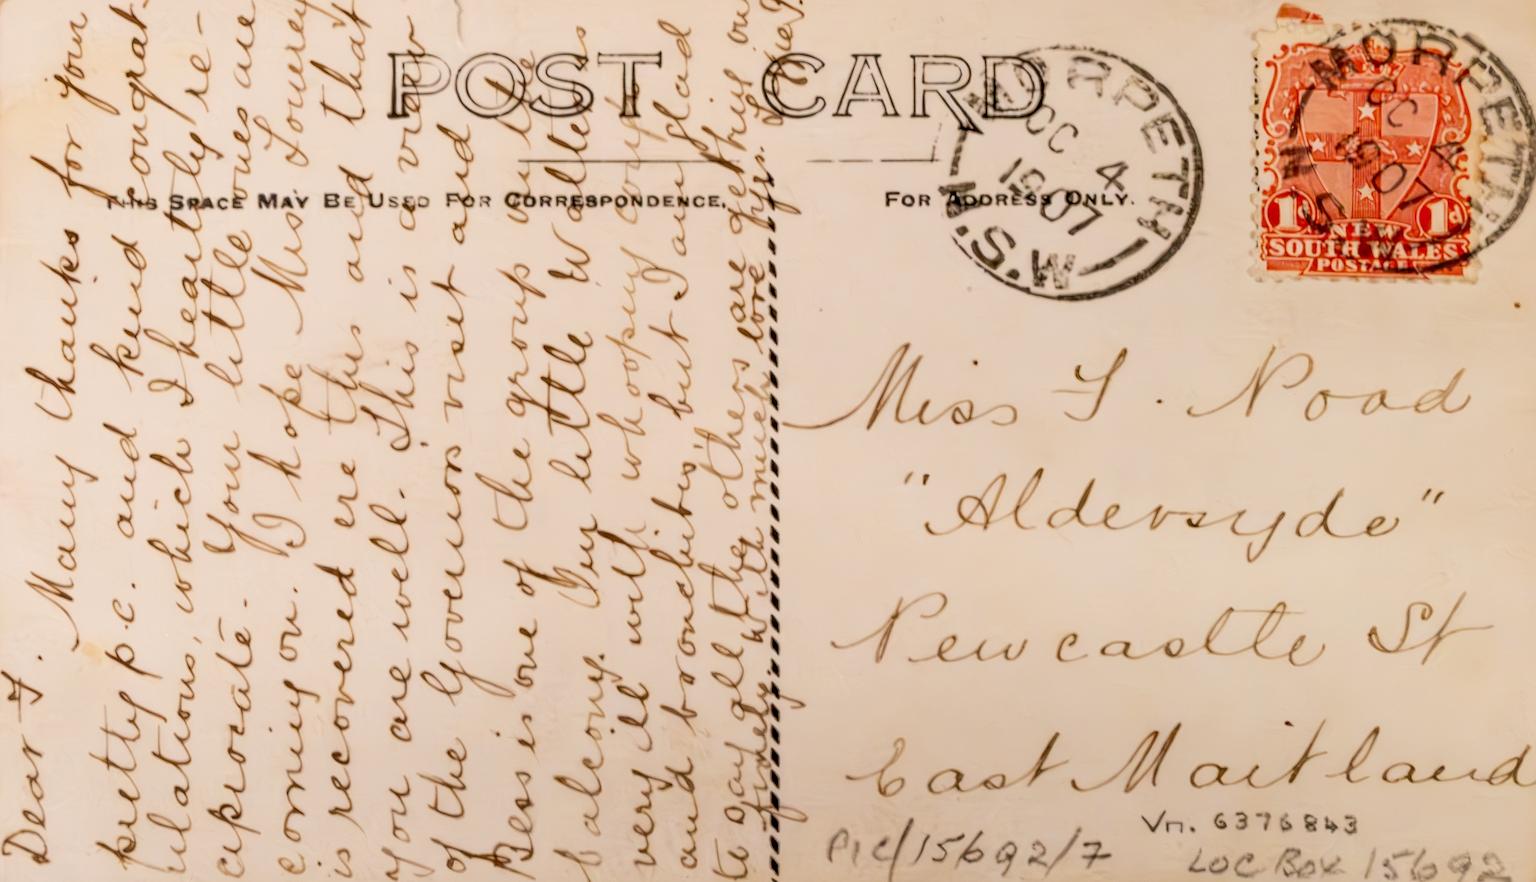 POST CARD
THIS SPACE MAY BE USED FOR CORRESPONDENCE.
FOR ADDRESS ONLY.
MORPETH
OC 4
1907
N.S.W
MORPETH
OC 4
1907
N.S.W
1d 1d
NEW
SOUTH WALES
POSTAGE
Dear F.
Many thanks for your
pretty p.c. and kind congrat-
ulations, which I heartily re-
ciprocate. Your little ones are
coming on. I hope Miss Lowerey
is recovered ere this and that
you are well. This is a view
of the Governors visit and
Bess is one of the group on the
balcony. Our little Wallet is
very ill with whooping cough
and bronchitis, but I am glad
to say all the others are getting on
finely. With much love yrs.
Miss F. Nood
"Aldersyde"
Newcastle St
East Maitland
Vn. 6376843
PIC/15692/7
LOC BOX 15692